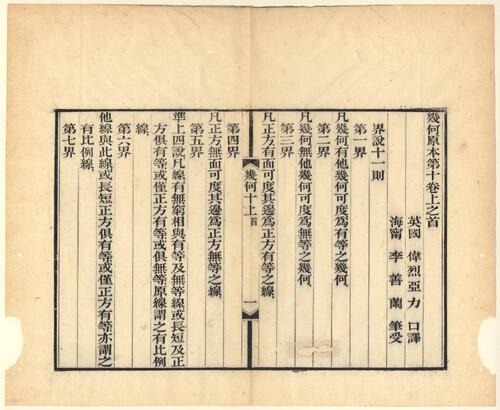 幾何原本第十卷上之首
英國 偉烈亞力 口譯
海甯 李善蘭 筆受
界說十一則
第一界
凡幾何有他幾何可度爲有等之幾何
第二界
凡幾何無他幾何可度爲無等之幾何
第三界
凡正方有面可度其邊爲正方有等之線
幾何十上首
一
第四界
凡正方無面可度其邊爲正方無等之線
第五界
準上四說凡線有無窮相與有等及無等線或長短及正
方俱有等或僅正方有等或俱無等原線謂之有比例
線
第六界
他線與此線或長短正方俱有等或僅正方有等亦謂之
有比例線
第七界